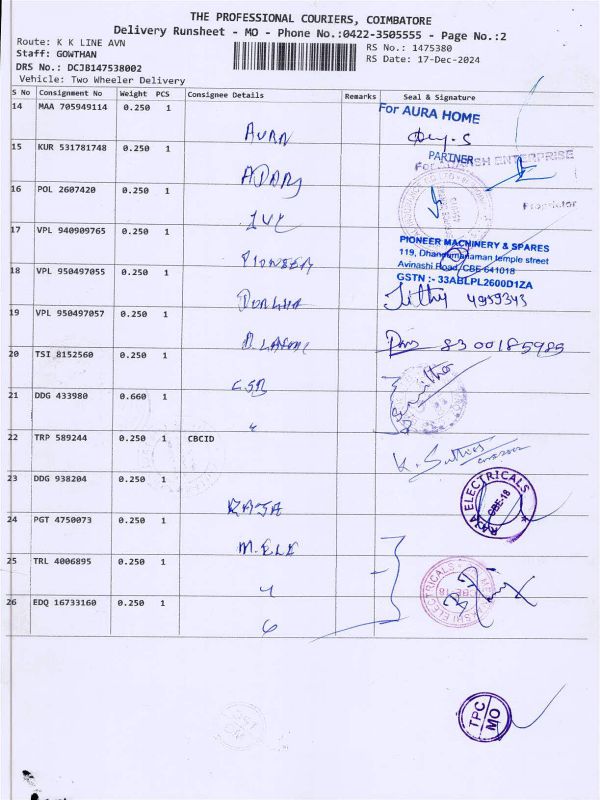 THE PROFESSIONAL COURIERS, COIMBATORE
Delivery Runsheet - MO - Phone No.:0422-3505555 - Page No.:2
Route: K K LINE AVN
RS No.: 1475380
Staff: GOWTHAN
RS Date: 17-Dec-2024
DRS No.: DCJB147538002
Vehicle: Two Wheeler Delivery
S No Consignment No Weight PCS Consignee Details Remarks Seal & Signature
14 MAA 705949114 0.250 1
For AURA HOME
AURA
PARTNER
15 KUR 531781748 0.250 1
ENTERPRISE
16 POL 2607420 0.250 1
Proprietor
17 VPL 940909765 0.250 1
PIONEER
PIONEER MACHINERY & SPARES
119, Dhandumaraman temple street
Avinashi Road, CBE-641018
GSTN :- 33ABLPL2600D1ZA
18 VPL 950497055 0.250 1
Jithy 4959343
19 VPL 950497057 0.250 1
8300185985
20 TSI 8152560 0.250 1
CSB
21 DDG 433980 0.660 1
"
22 TRP 589244 0.250 1 CBCID
23 DDG 938204 0.250 1
RAJA
RAJA ELECTRICALS
CBE-18
24 PGT 4750073 0.250 1
M. ELE
25 TRL 4006895 0.250 1
"
ELECTRICALS
CBE-18
26 EDQ 16733160 0.250 1
"
TPC
MO